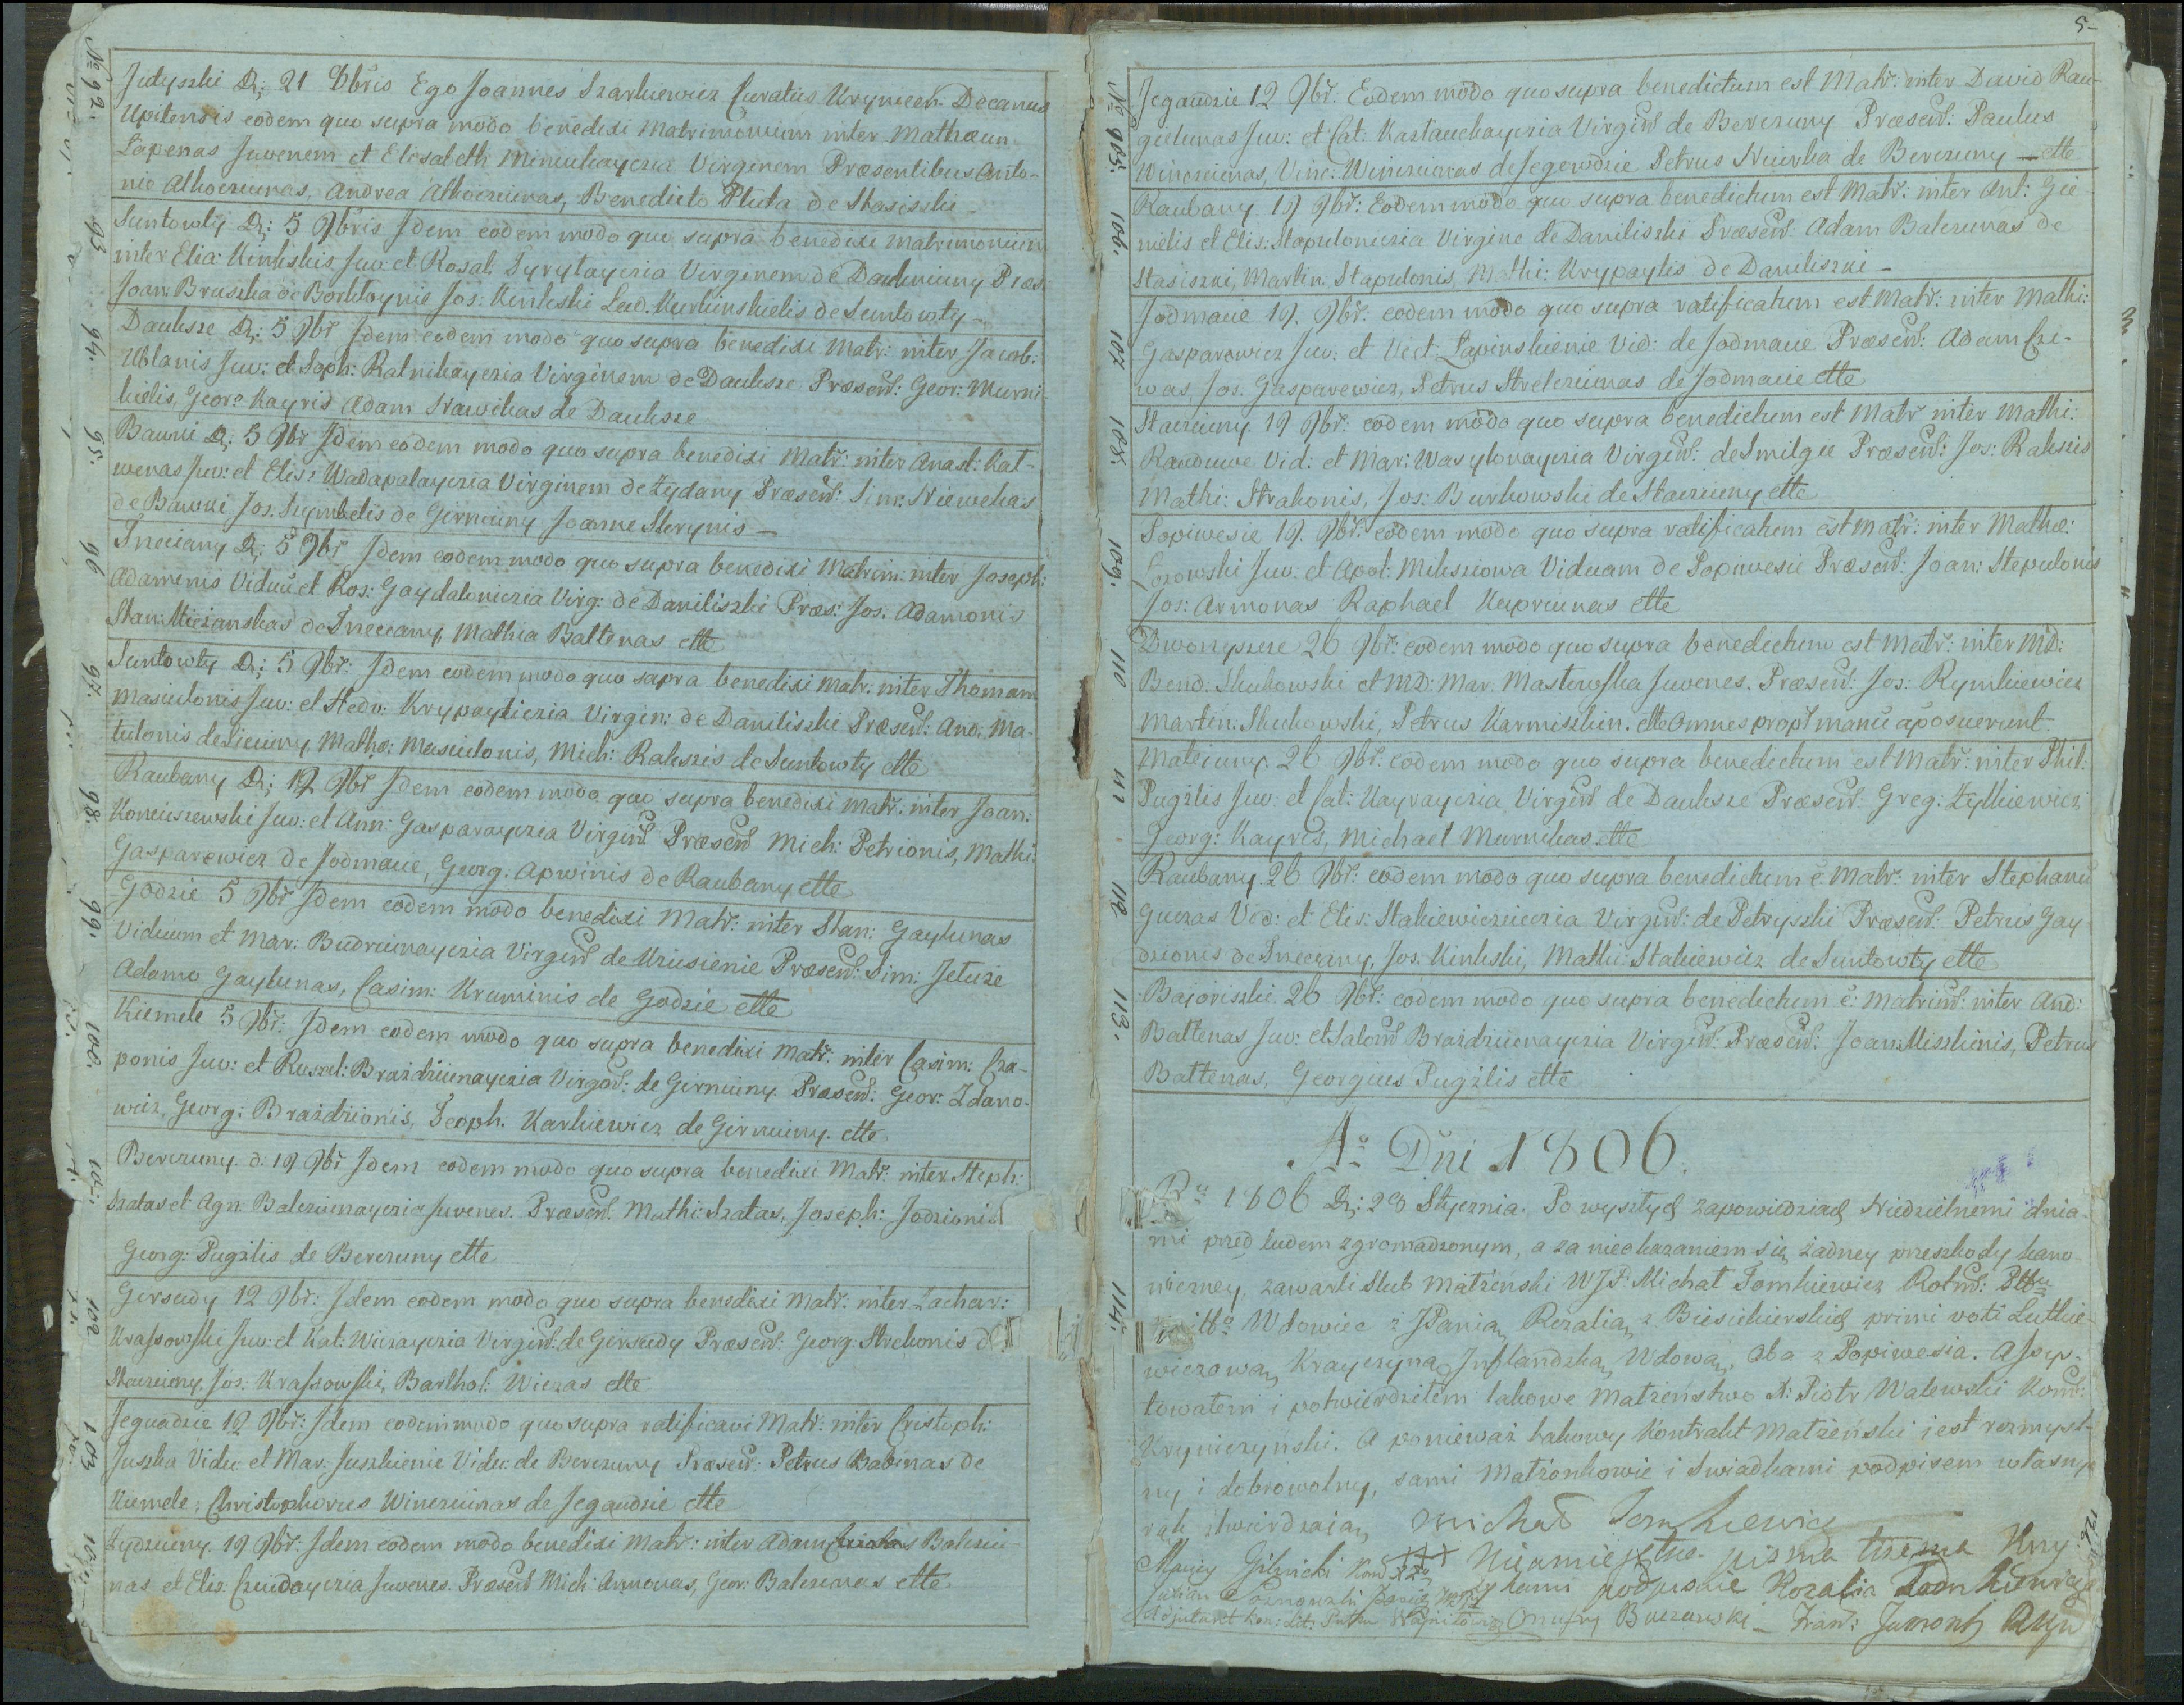 No 92.
Judyszki D; 21 8bris Ego Joannes Szarkiewicz Curatus Krynicen. Decanus
Upitensis eodem quo supra modo benedixi Matrimonium inter Mathæum
Łapenas Juvenem et Elisabeth Minukayczia Virginem Præsentibus Anto-
nio Alkoczunas, Andrea Alkocziunas, Benedicto Pluta de Stasiszki
93
Suntowty D; 5 9bris Idem eodem modo quo supra benedixi matrimonium
inter Elia: Kinkskis Juv: et Rosal. Tyrytayczia Virginem de Daukniuny Præs:
Joan: Bruszka de Borkłoynie Jos: Kinkski Leod. Kurkinskielis de Suntowty
94.
Daukszе D; 5 9br Idem eodem modo quo supra benedixi Matr: inter Jacob:
Ublanis Juv: et Soph: Ratnikayczia Virginem de Dauksze Præsen: Geor: Murni-
kielis, Georg Kayris Adam Nawikas de Dauksze
95.
Bawni D; 5 9br Idem eodem modo quo supra benedixi Matr: inter Anast: Kat-
wenas Juv: et Elis: Wadapalayczia Virginem de Łydany Præsen: Sim: Niewekas
de Bawni Jos. Szymbelis de Girniuny Joanne Skrynis
96
Sneciany D; 5 9br Idem eodem modo quo supra benedixi Matrim: inter Joseph:
Adamenis Viduu et Ros: Gaydaloniczia Virg: de Daniliszki Præs: Jos: Adamonis
Stan: Mieżanskas de Sneciany, Mathia Baltenas ette
97.
Suntowty D; 5 9br: Idem eodem modo quo supra benedixi matr. inter Thomam
Masiulonis Juv: et Hedv: Krypayticzia Virgin: de Daniliszki Præsen: And. Ma-
tulonis de Sieciuny Mathæ: Masiulonis, Mich: Rakszis de Suntowty ette
98.
Raubany D; 12 9br Idem eodem modo quo supra benedixi matr: inter Joan:
Konciszewski Juv: et Ann: Gasparayczia Virgin Præsen Mich: Petrionis, Mathi:
Gasparewicz de Jodmacie, Georg. Apwinis de Raubany ette
99.
Godzie 5 9br Idem eodem modo benedixi Matr: inter Stan: Gaylunas
Viduum et Mar: Budrunayczia Virgin de Uziusienie Præsen: Sim: Jetuze
Adamo Gaylunas, Casim: Kruminis de Godzie ette
100.
Kiemele 5 9br: Idem eodem modo quo supra benedixi Matr: inter Casim: Cza-
ponis Juv: et Ruzal: Brażdziunayczia Virgin: de Girniuny Præsen: Geor: Zdano-
wicz, Georg: Brażdzionis, Teoph. Karkiewicz de Girniuny. ette
101.
Berczuny d: 19 9br Idem eodem modo quo supra benedixi Matr: inter Steph:
Szatas et Agn: Balcziunayczia Juvenes. Præsen. Mathi: Szatas, Joseph: Jodzionis
Georg: Pugżlis de Berczuny ette
102
Girsudy 12 9br: Idem eodem modo quo supra benedixi Matr: inter Zachar:
Krassowski Juv: et Kat: Wiczayczia Virgin: de Girsudy Præsen: Georg. Strekonis d
Stacziuny, Jos: Krassowski, Barthol: Wiczas ette
103
Jegaudzie 12 9br: Idem eodem modo quo supra ratificavi Matr: inter Cristoph:
Juszka Vidu: et Mar: Juszkienie Vidu: de Berczuny Præsen: Petrus Babinas de
Kiemele, Christophorus Winczunas de Jegaudzie ette
Łydziuny. 19 9br: Idem eodem modo benedixi Matr: inter Adam Balcziu-
nas et Elis: Czuidayczia Juvenes. Præsen Mich Armonas, Geor: Balczunas ette
5-
No 105.
Jegaudzie 12 9br. Eodem modo quo supra benedictum est Matr: inter David Rau-
gulunas Juv: et Cat: Kaztauckayczia Virgin de Berczuny Præsen: Paulus
Winczunas, Vinc: Winczunas de Jegowdzie Petrus Niurka de Berczuny ette
106.
Raubany 19 9br: Eodem modo quo supra benedictum est Matr: inter Ant: Gie-
nielis et Elis: Stapuloniczia Virgine de Daniliszki Præsen: Adam Balczunas de
Stasiszki, Martin: Stapulonis, Mathi: Krypaytis de Daniliszki
107
Jodmacie 19. 9br: eodem modo quo supra ratificatum est Matr: inter Mathi:
Gasparowicz Juv: et Vict: Łapinskienie Vid: de Jodmacie Præsen: Adam Cze-
was, Jos: Gasparewicz, Petrus Strelcziunas de Jodmacie ette
108.
Stacziuny 19 9br: eodem modo quo supra benedictum est Matr inter Mathi:
Randuwe Vid: et Mar: Wasylonayczia Virgin: de Smilgie Præsen: Jos: Rakszis
Mathi: Strakonis, Jos: Burkowski de Stacziuny ette
109.
Popiwesie 19. 9br: eodem modo quo supra ratificatum est Matr: inter Mathæ:
Łozowski Juv. et Apol: Mikszowa Viduam de Popiwesie Præsen: Joan: Stepulonis
Jos: Armonas Raphael Kuprunas ette
110
Dwonyszcze 26 9br: eodem modo quo supra benedictum est Matr: inter MD:
Bend: Skukowski et MD: Mar: Mastowska Juvenes. Præsen: Jos: Rymkiewicz
Martin: Skukowski, Petrus Karmiszkin. ette Omnes propr manu aposuerunt
111
Mateiuny. 26 9br: eodem modo quo supra benedictum est Matr: inter Phil:
Pugżlis Juv: et Cat: Kayrayczia Virgin de Dauksze Præsen: Greg: Żylkiewicz
Georg: Kayris, Michael Murnikas ette
112.
Raubany 26 9br: eodem modo quo supra benedictum e Matr: inter Stephanu
Guzas Vid: et Elis: Stakiewicziczia Virgin: de Petryszki Præsen: Petrus Gay-
dzionis de Sneciany, Jos. Kinkski, Mathi: Stakiewicz de Suntowty ette
113.
Bajoriszki 26 9br: eodem modo quo supra benedictum e: Matrim: inter And:
Baltenas Juv: et Salom Brażdziunayczia Virgin: Præsen: Joan: Miszkinis, Petrus
Baltenas, Georgius Pugżlis ette
Ao Dni 1806.
114.
Ru 1806 D: 28 Stycznia. Po wyszłych zapowiedziach Niedzielnemi dnia-
mi przed ludem zgromadzonym, a za nieokazaniem się żadney przeszkody kano-
niczney, zawarli Slub Małżenski WJP. Michał Tomkiewicz Rotm:
Wdowiec z JPanią Rozalią z Biesiekierskich primi voti Lutkie-
wiczową Krayczyną Inflandzką Wdową, Oba z Popiwesia. Assys-
towałem i potwierdziłem takowe Małżenstwo X: Piotr Walewski Kom:
Kryniczynski. A ponieważ takowy Kontrakt Małżeński iest rozmysl-
ny i dobrowolny, sami Małżonkowie i Swiadkami podpisem własnych
rąk stwierdzaią Michał Tomkiewicz
+++ Nieumiejętna pisma trzema Krzy
żykami podpisuie Rozalia Tomkiewicz
Onufry Buczowski Fran: